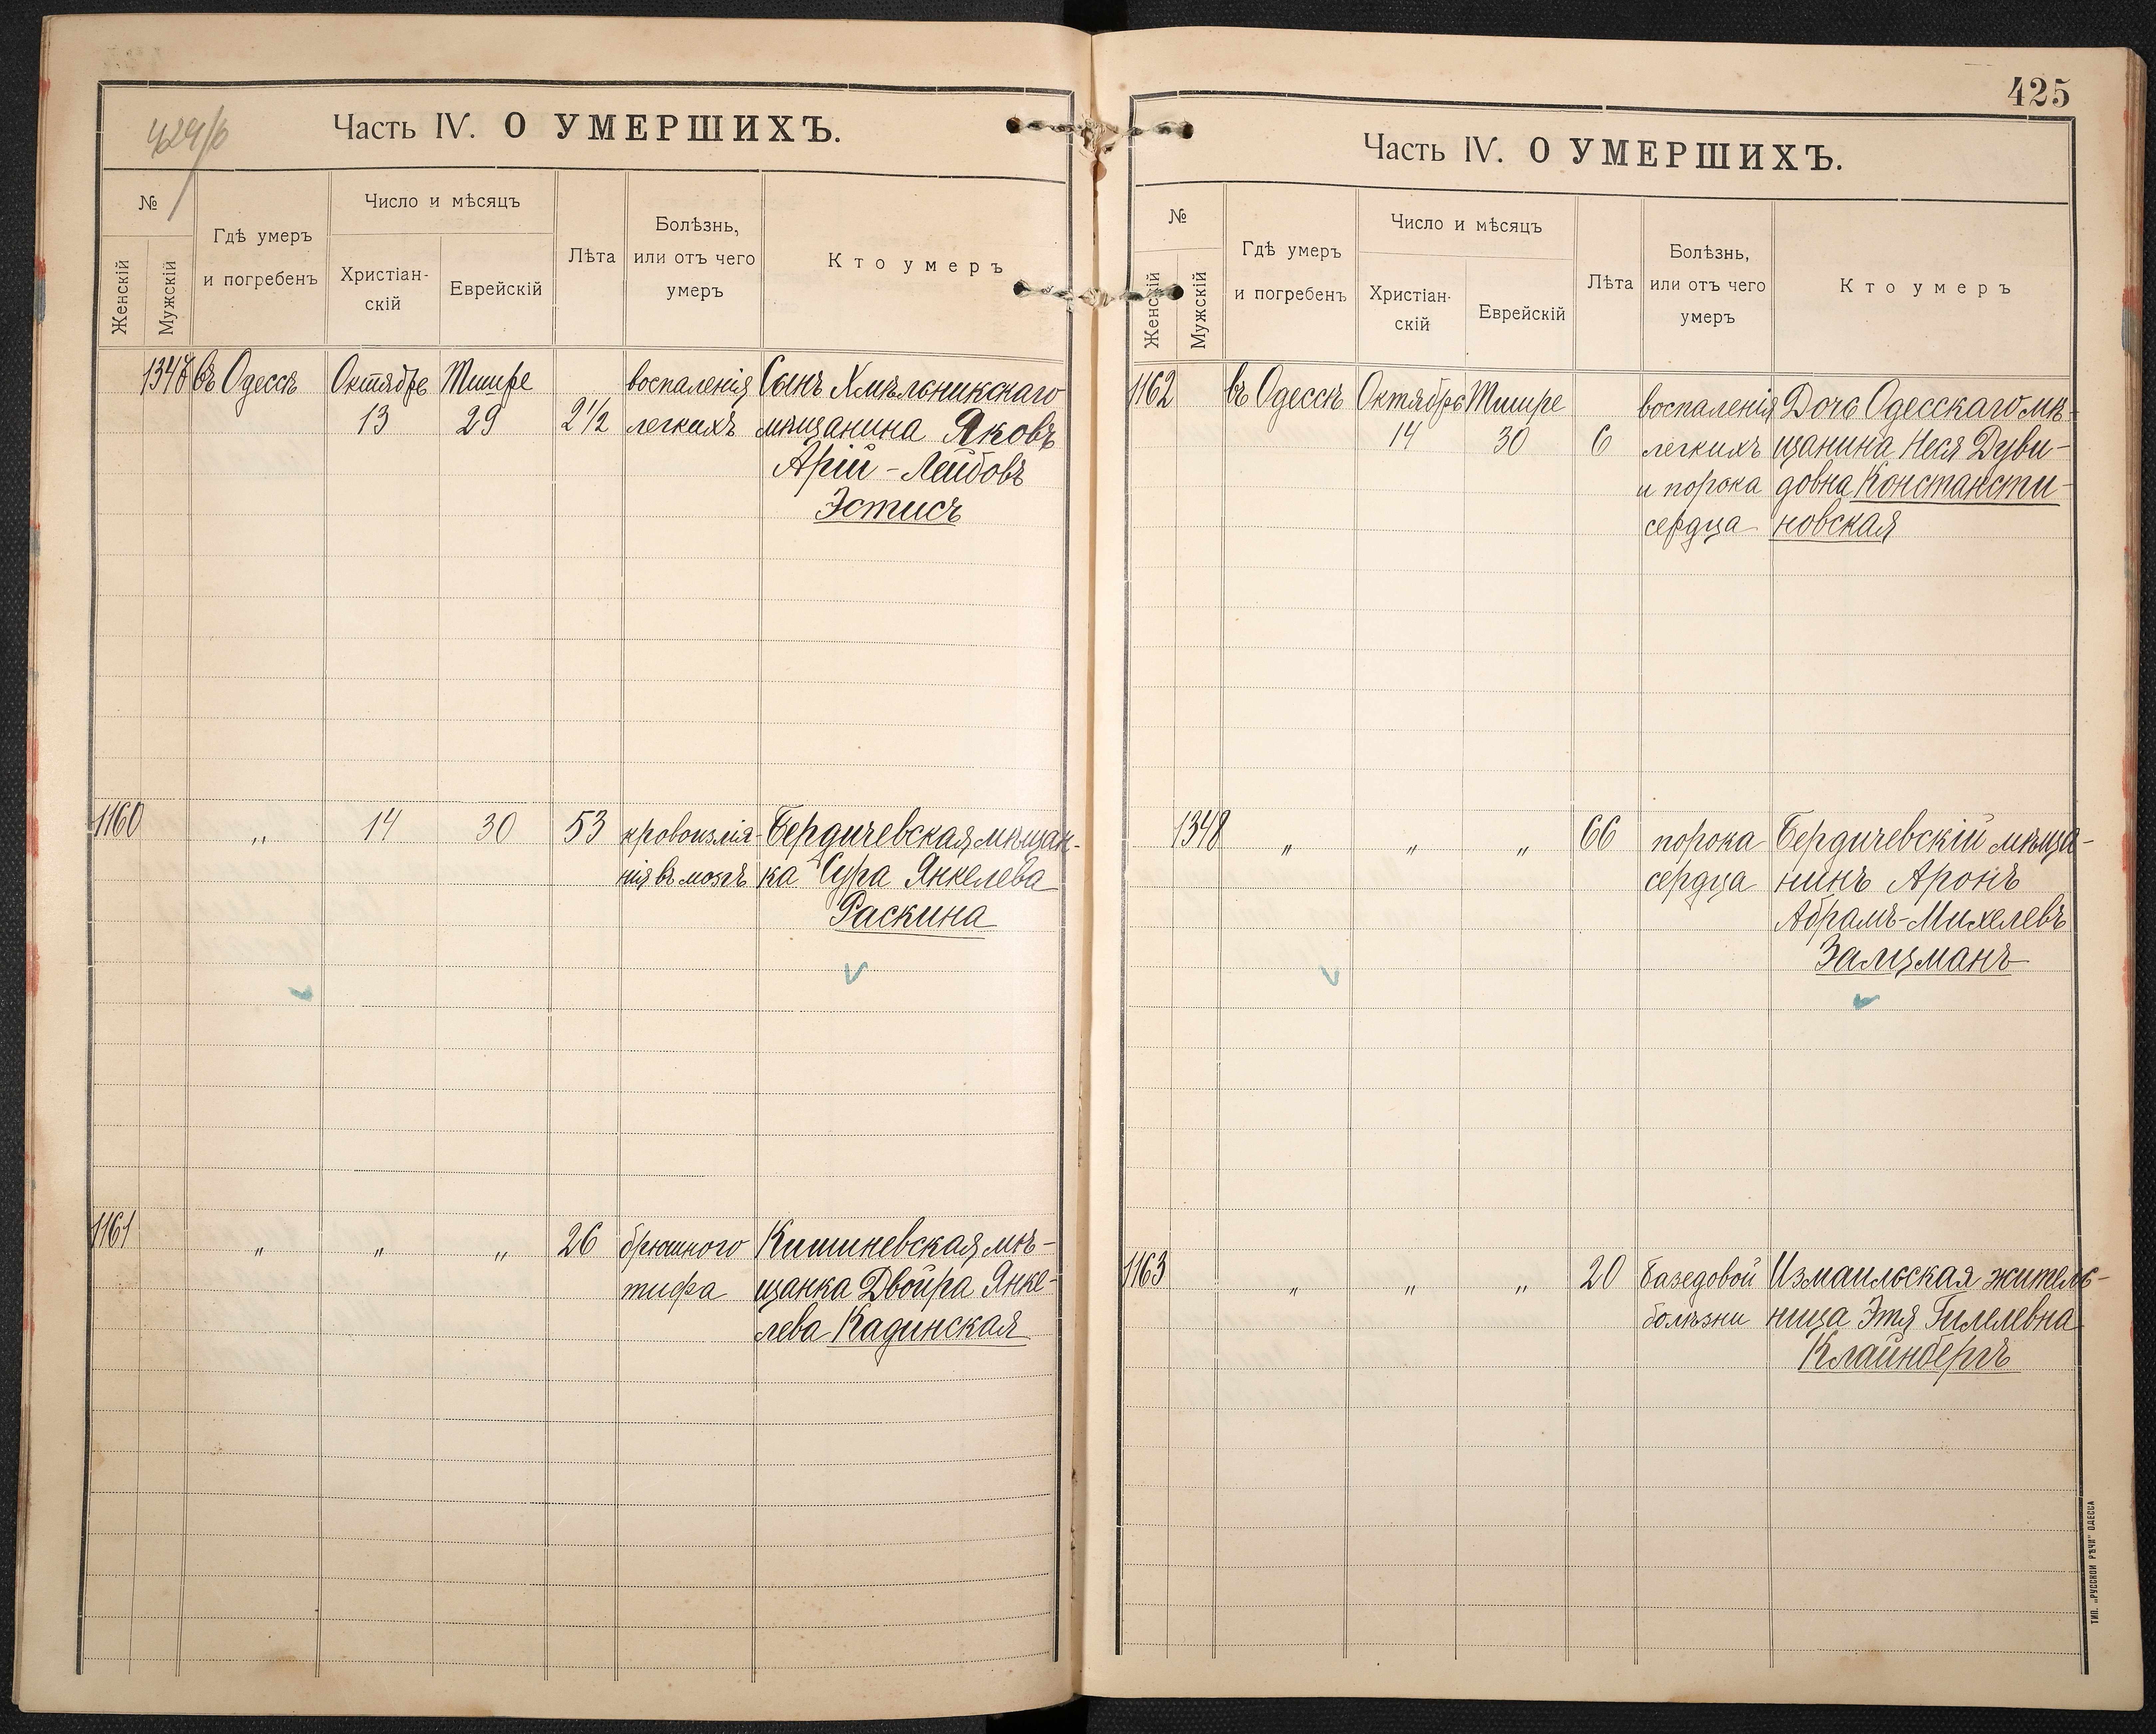 424/б
Часть IV. О УМЕРШИХЪ.
№
Женскій
Мужскій
Гдѣ умеръ
и погребенъ
Число и мѣсяцъ
Христіан-
скій
Еврейскій
Лѣта
Болѣзнь,
или отъ чего
умеръ
Кто умеръ
въ Одессѣ Октябре Тишре воспаленія Сынъ Хмѣльникскаго
13 29 2½ легкихъ мѣщанина Яковъ
Арій-Лейбовъ
Эстисъ
1160 „ 14 30 53 кровоизлія- Бердичевская мѣщан-
нія въ мозгъ ка Сура Янкелева
Раскина
1161 „ „ „ 26 брюшного Кишиневская мѣ-
тифа щанка Двойра Янке-
лева Кадинская
425
Часть IV. О УМЕРШИХЪ.
№
Женскій
Мужскій
Гдѣ умеръ
и погребенъ
Число и мѣсяцъ
Христіан-
скій
Еврейскій
Лѣта
Болѣзнь,
или отъ чего
умеръ
Кто умеръ
1162 въ Одессѣ Октябре Тишре воспаленія Дочь Одесскаго мѣ-
14 30 6 легкихъ щанина Неся Дуви-
и порока довна Констансти-
сердца новская
1348 „ „ „ 66 порока Бердичевскій мѣща-
сердца нинъ Аронъ
Абрамъ-Михелевъ
Залцманъ
1163 „ „ „ 20 базедовой Измаильская житель-
болѣзни ница Этя Гилелевна
Клайнбергъ
ТИП. „РУССКОЙ РѢЧИ" ОДЕССА